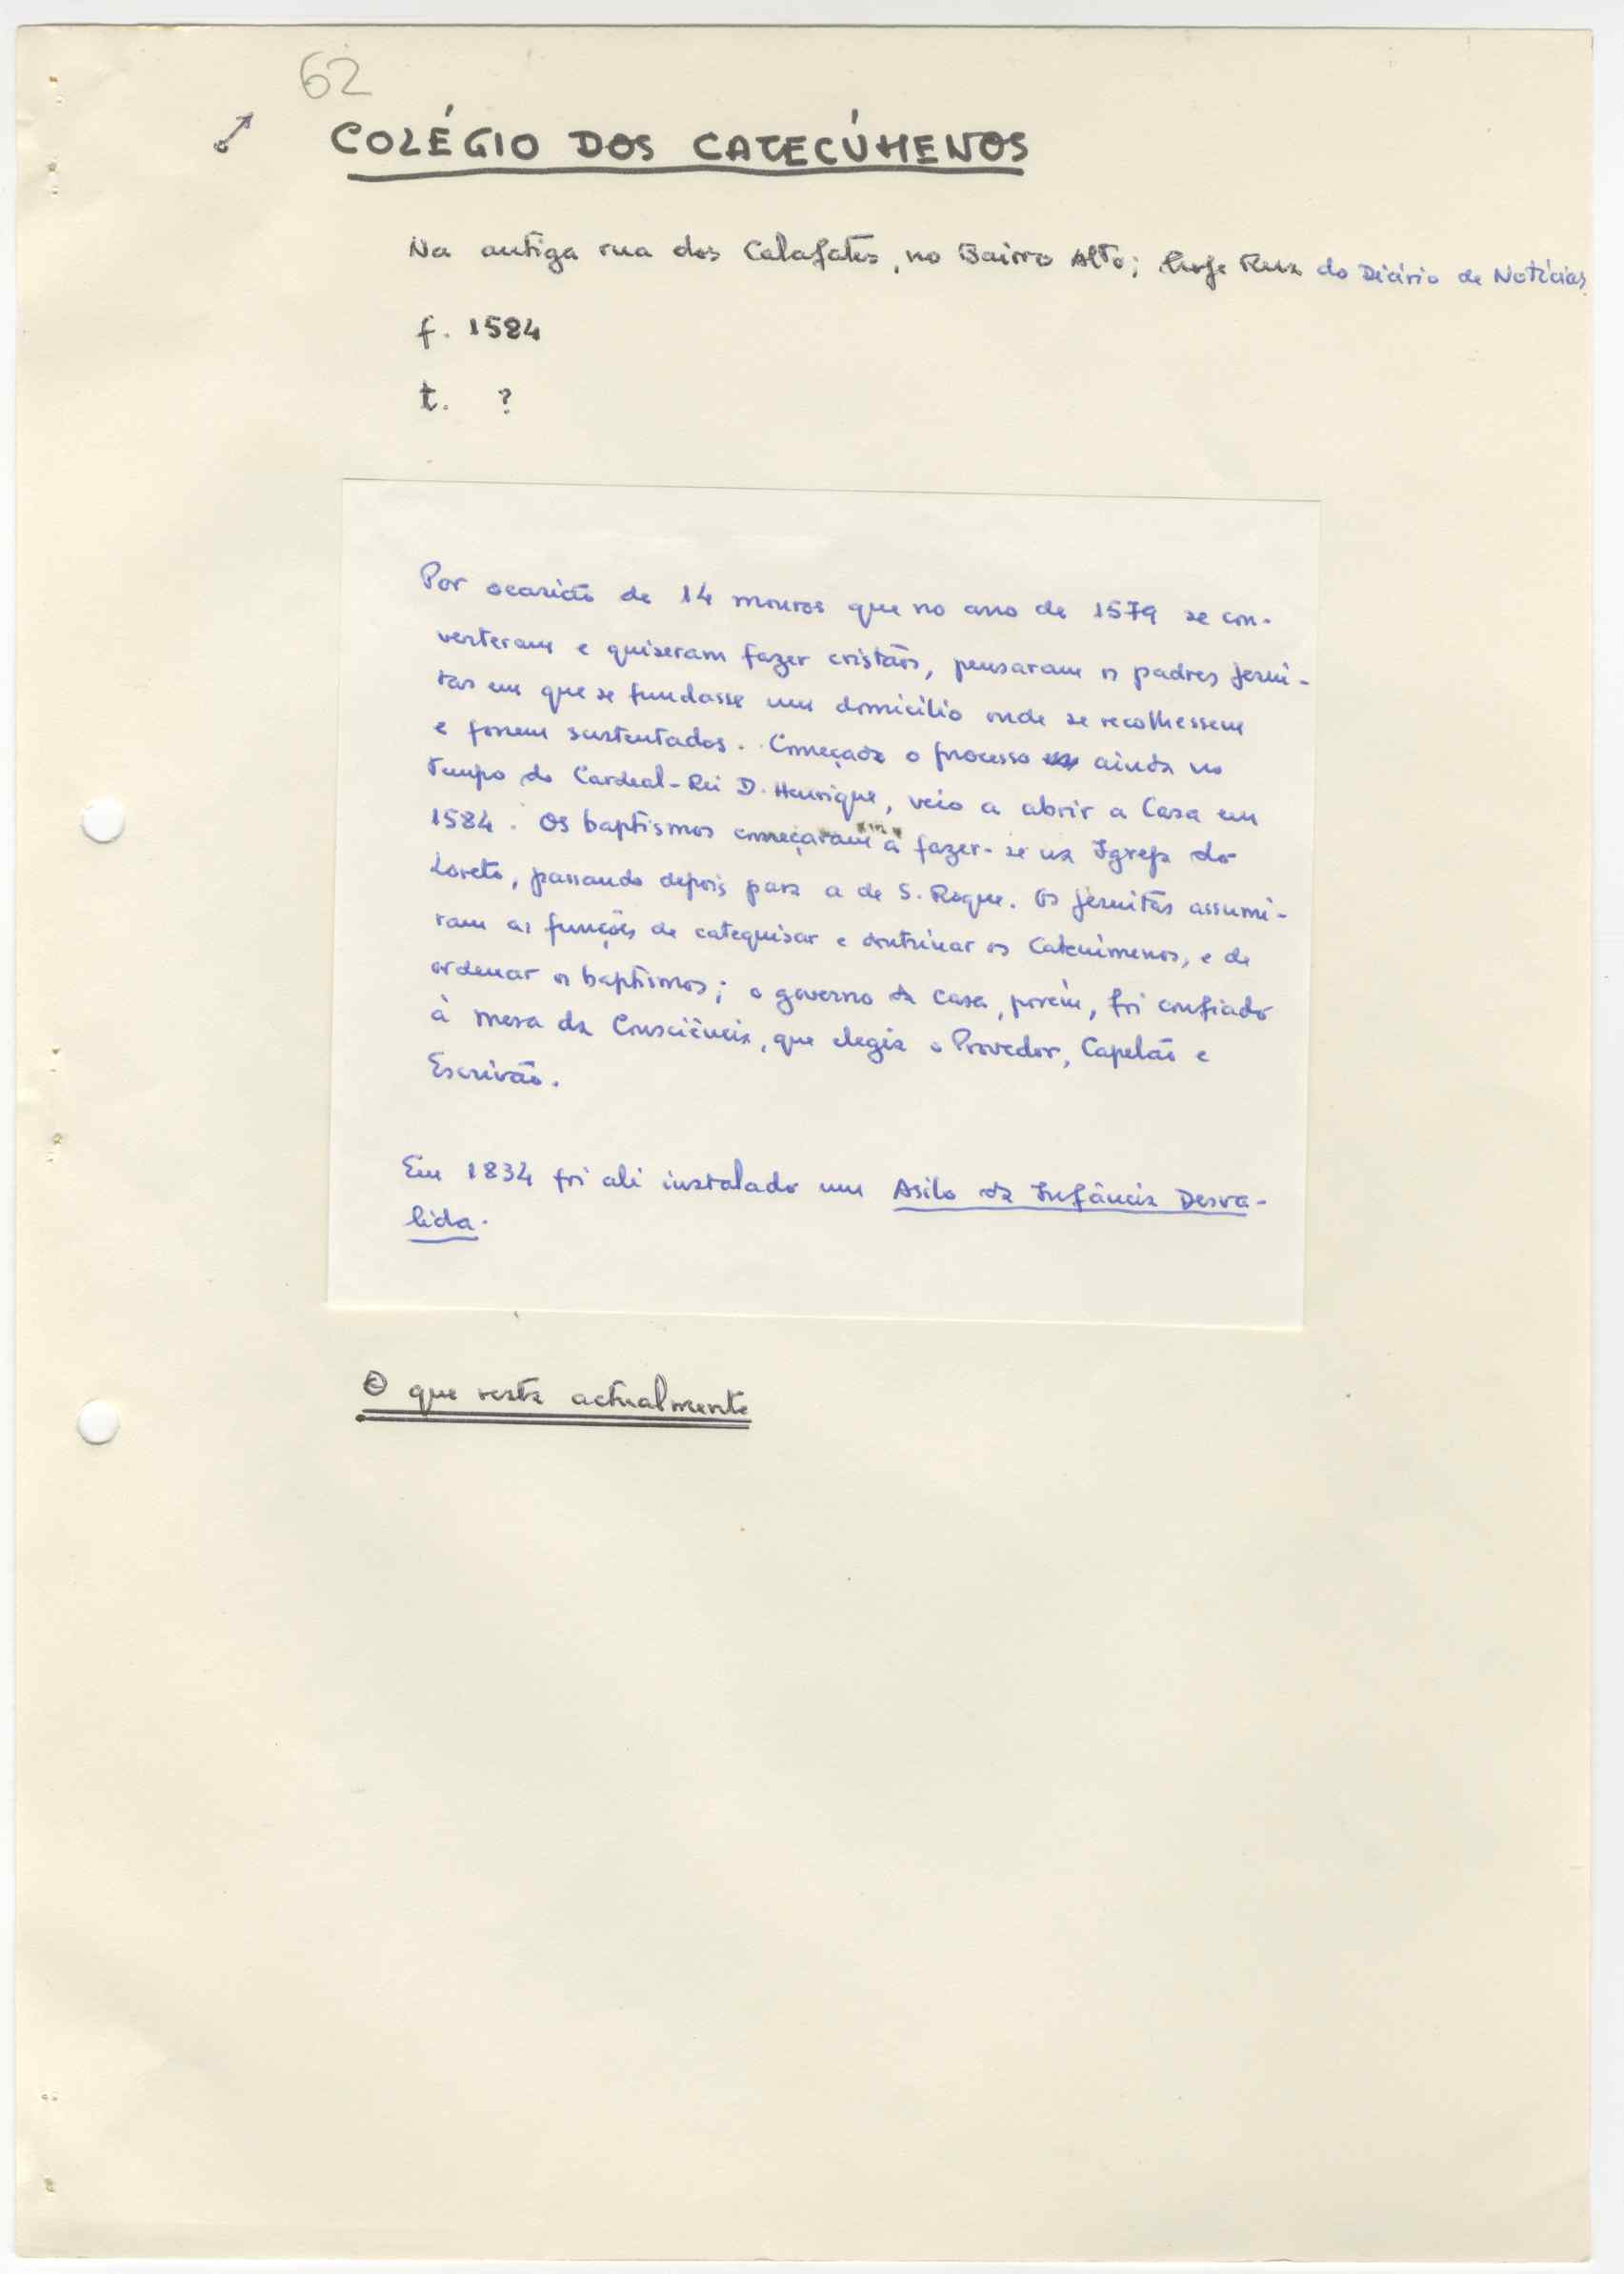 62
COLÉGIO DOS CATECÚMENOS
Na antiga rua dos Calafates, no Bairro Alto; hoje Rua do Diário de Notícias
f. 1584
t. ?
Por ocasião de 14 mouros que no ano de 1579 se con-
verteram e quiseram fazer cristãos, pensaram os padres jesui-
tas em que se fundasse um domicílio onde se recolhessem
e fossem sustentados. Começado o processo ainda no
tempo do Cardeal-Rei D. Henrique, veio a abrir a Casa em
1584. Os baptismos começaram a fazer-se na Igreja do
Loreto, passando depois para a de S. Roque. Os jesuitas assumi-
ram as funções de catequisar e doutrinar os Catecúmenos, e de
ordenar os baptismos; o governo da casa, porém, foi confiado
à mesa da Consciência, que elegia o Provedor, Capelão e
Escrivão.
Em 1834 foi ali instalado um Asilo da Infância Desva-
lida.
O que resta actualmente